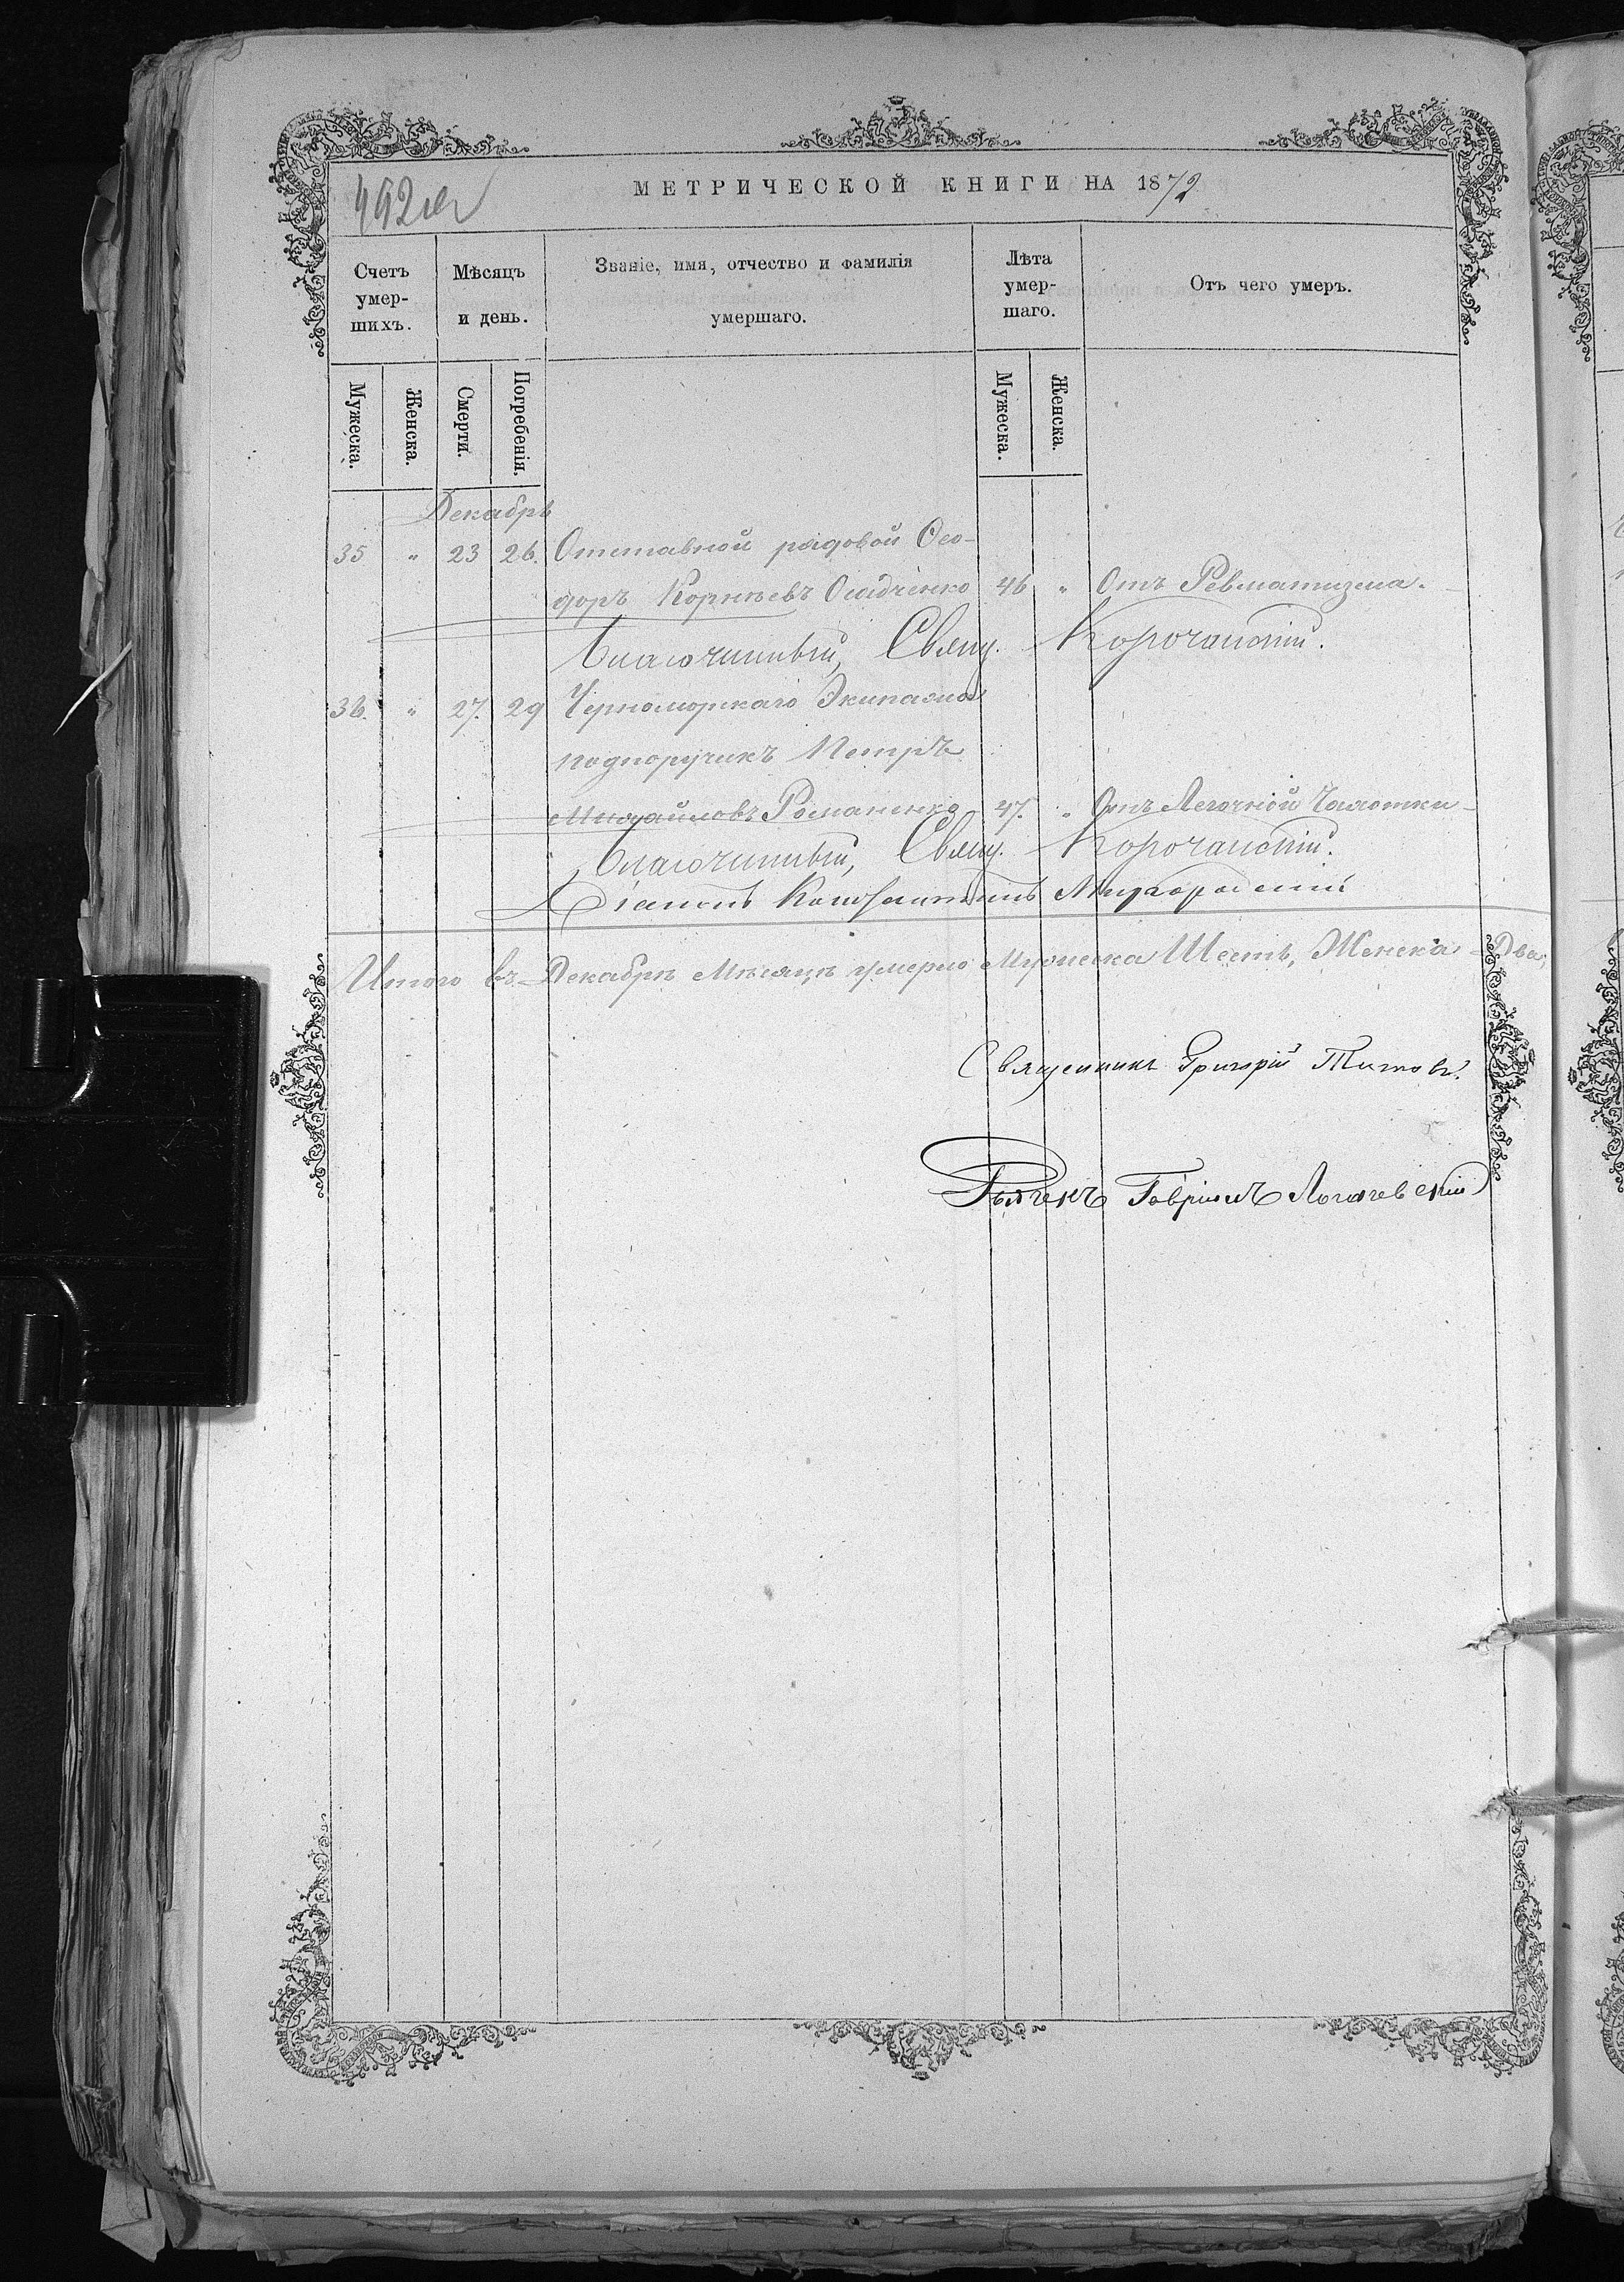 492 об
МЕТРИЧЕСКОЙ КНИГИ НА 1872
Счетъ умер- шихъ.
Мѣсяцъ и день.
Званіе, имя, отчество и фамилія умершаго.
Лѣта умер- шаго.
Отъ чего умеръ.
Мужеска.
Женска.
Смерти.
Погребенія.
Мужеска.
Женска.
Декабрь
35 " 23 26. Отставной рядовой Ѳео-
доръ Корнѣевъ Осадченко 46 " Отъ Ревматизма.
Благочинный, Свящ. Корочанскій.
36. " 27. 29 Черноморскаго Экипажа
подпоручикъ Петръ
Михайловъ Романенко 47. " Отъ Легочной Чахотки
Благочинный, Свящ. Корочанскій.
Діаконъ Константинъ
Итого въ Декабрѣ Мѣсяцѣ умерло Мужеска Шесть, Женска Два,
Священникъ Григорій Титовъ.
Гавріилъ